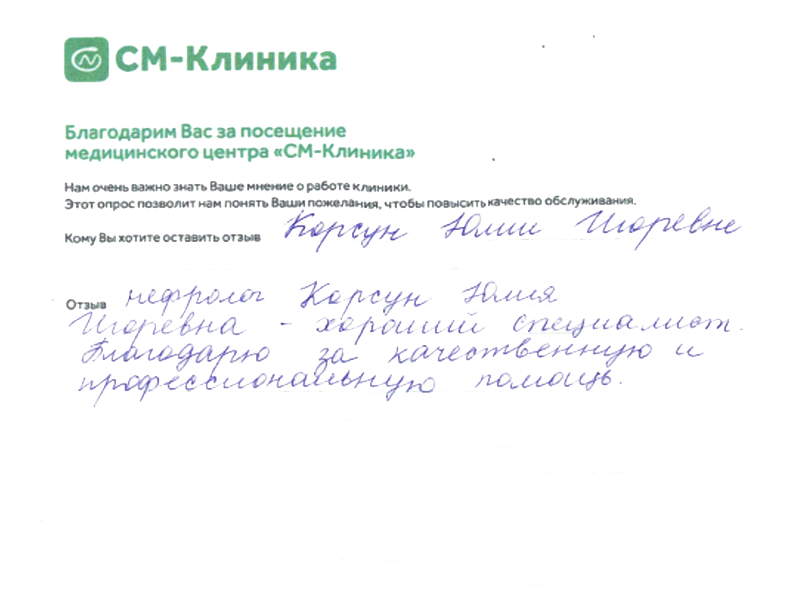 СМ-Клиника
Благодарим Вас за посещение
медицинского центра «СМ-Клиника»
Нам очень важно знать Ваше мнение о работе клиники.
Этот опрос позволит нам понять Ваши пожелания, чтобы повысить качество обслуживания.
Кому Вы хотите оставить отзыв Корсун Юлии Игоревне
Отзыв нефролог Корсун Юлия
Игоревна - хороший специалист.
Благодарю за качественную и
профессиональную помощь.